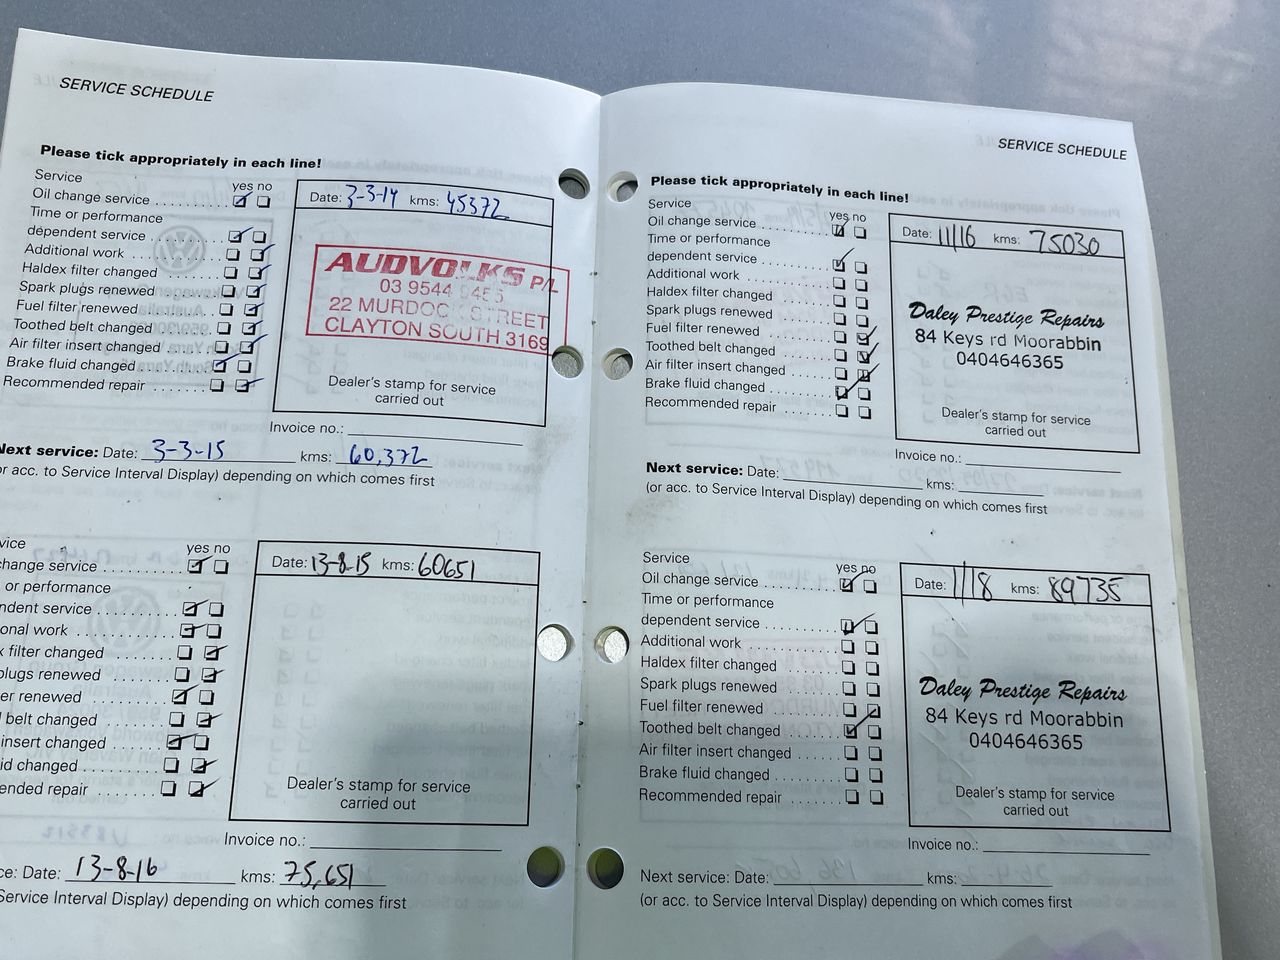 SERVICE SCHEDULE
Please tick appropriately in each line!
Service
yes no
Oil change service
Time or performance
dependent service
Additional work
Haldex filter changed
Spark plugs renewed
Fuel filter renewed
Toothed belt changed
Air filter insert changed
Brake fluid changed
Recommended repair
Date: 3-3-14 kms: 45372
AUDVOLKS P/L
03 9544
22 MURDOC STREET
CLAYTON SOUTH 3169
Dealer's stamp for service
carried out
Invoice no.:
Next service: Date: 3-3-15 kms: 60,372
or acc. to Service Interval Display) depending on which comes first
vice
yes no
change service
or performance
ndent service
onal work
x filter changed
plugs renewed
er renewed
belt changed
insert changed
id changed
ended repair
Date: 13-8-15 kms: 60651
Dealer's stamp for service
carried out
Invoice no.:
ce: Date: 13-8-16 kms: 75,651
Service Interval Display) depending on which comes first
SERVICE SCHEDULE
Please tick appropriately in each line!
Service
yes no
Oil change service
Time or performance
dependent service
Additional work
Haldex filter changed
Spark plugs renewed
Fuel filter renewed
Toothed belt changed
Air filter insert changed
Brake fluid changed
Recommended repair
Date: 11/16 kms: 75030
Daley Prestige Repairs
84 Keys rd Moorabbin
0404646365
Dealer's stamp for service
carried out
Invoice no.:
Next service: Date: kms:
(or acc. to Service Interval Display) depending on which comes first
Service
yes no
Oil change service
Time or performance
dependent service
Additional work
Haldex filter changed
Spark plugs renewed
Fuel filter renewed
Toothed belt changed
Air filter insert changed
Brake fluid changed
Recommended repair
Date: 1/18 kms: 89735
Daley Prestige Repairs
84 Keys rd Moorabbin
0404646365
Dealer's stamp for service
carried out
Invoice no.:
Next service: Date: kms:
(or acc. to Service Interval Display) depending on which comes first